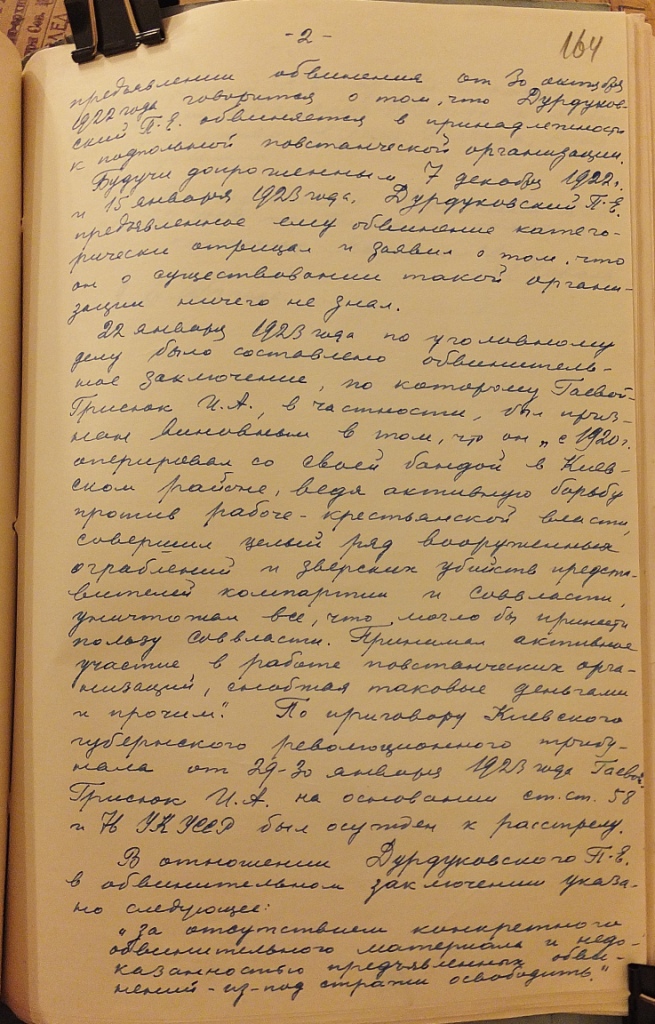 -2-
164
предъявлении обвинения от 30 октября
1922 года говорится о том, что Дурдуков-
ский П.Е. обвиняется в принадлежности
к подпольной повстанческой организации.
Будучи допрошенным 7 декабря 1922 г.
и 15 января 1923 года, Дурдуковский П.Е.
предъявленное ему обвинение катего-
рически отрицал и заявил о том, что
он о существовании такой органи-
зации ничего не знал.
22 января 1923 года по уголовному
делу было составлено обвинитель-
ное заключение, по которому Гаевой-
Грисюк И.А., в частности, был приз-
нан виновным в том, что он „с 1920 г.
оперировал со своей бандой в Киев-
ском районе, ведя активную борьбу
против рабоче-крестьянской власти,
совершил целый ряд вооруженных
ограблений и зверских убийств предста-
вителей компартии и соввласти,
уничтожал все, что могло бы принести
пользу соввласти. Принимал активное
участие в работе повстанческих орга-
низаций, снабжая таковые деньгами
и прочим". По приговору Киевского
губернского революционного трибу-
нала от 29-30 января 1923 года Гаевой-
Грисюк И.А. на основании ст.ст. 58
и УК УССР был осужден к расстрелу.
В отношении Дурдуковского П.Е.
в обвинительном заключении указа-
но следующее:
„за отсутствием конкретного
обвинительного материала и недо-
казанностью предъявленных обви-
нений - из-под стражи освободить."